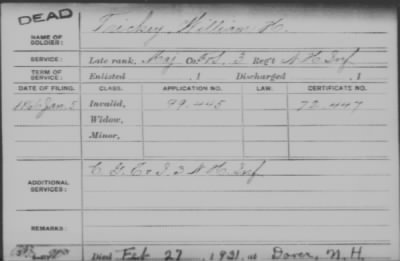 DEAD
Trickey, William H.
NAME OF SOLDIER:
SERVICE: Late rank, Maj Co. F.S. 3 Regt N. H. Inf
TERM OF SERVICE: Enlisted , 1 Discharged , 1
DATE OF FILING. CLASS. APPLICATION NO. LAW. CERTIFICATE NO.
Jan. 5 Invalid, 99.445 72.447
Widow,
Minor,
ADDITIONAL SERVICES: C G, Co I 3 N H Inf
REMARKS:
Died Feb 27 , 1921, at Dover, N. H.